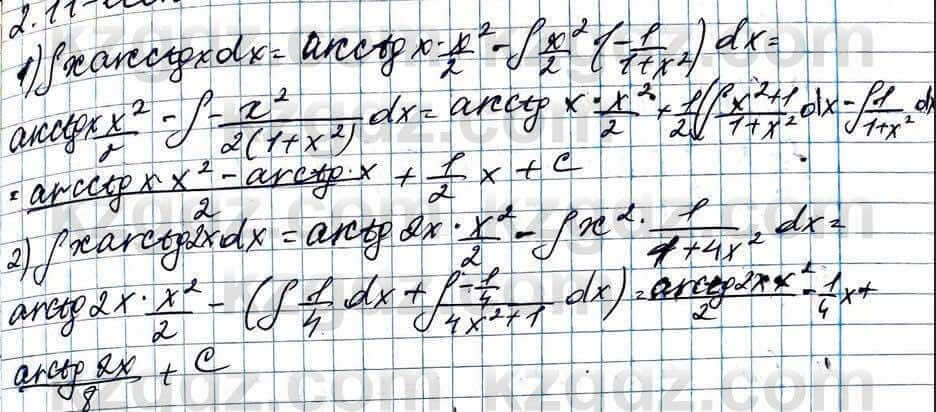 1) ∫xarcctgxdx = arcctg x · x²/2 - ∫ x²/2 (-1/(1+x²)) dx =
arcctgx x²/2 - ∫ - x²/(2(1+x²)) dx = arcctg x · x²/2 + 1/2 (∫ (x²+1)/(1+x²) dx - ∫ 1/(1+x²) dx
= (arcctg x · x² - arctg x)/2 + 1/2 x + C
2) ∫xarctg2xdx = arctg 2x · x²/2 - ∫x² · 1/(1+4x²) dx =
arctg 2x · x²/2 - (∫ 1/4 dx + ∫ (-1/4)/(4x²+1) dx) = (arctg 2x · x²)/2 - 1/4 x +
(arctg 2x)/8 + C